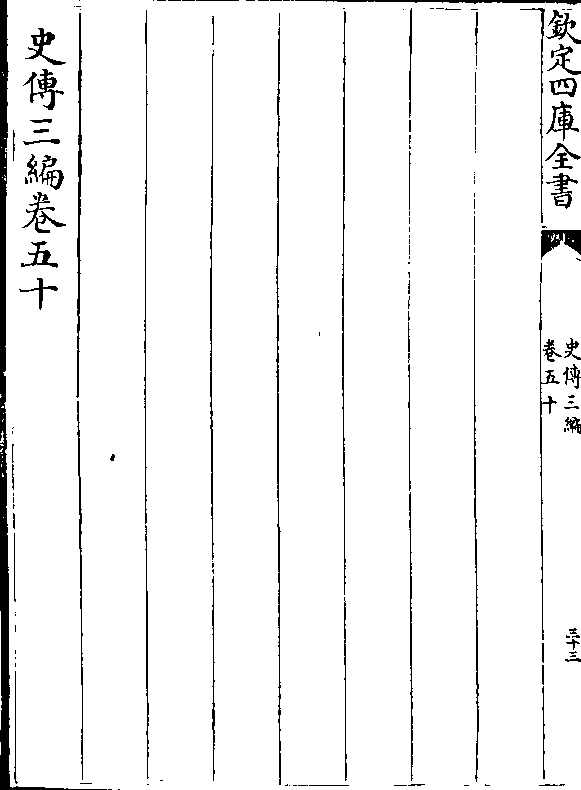 欽定四庫全書
史傳三編
卷五十
三十三
史傳三編卷五十